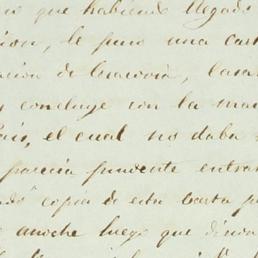 que habiendo llegado
le puso una cart
ación de Cracovia,
y concluye con la
País, el cual no daba
parecia prudente entrar
copia de esta carta p
anoche luego que